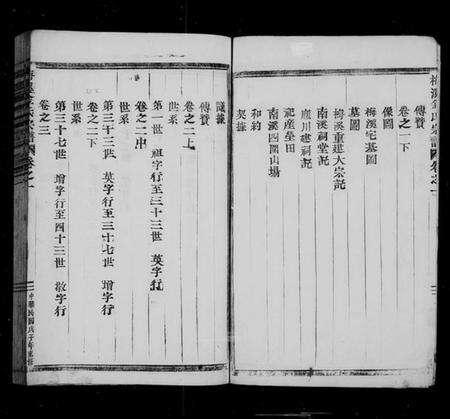 傳贊
卷之一下
像圖
梅溪宅基圖
墓圖
梅溪重建大宗記
南溪祠堂記
產川建祠記
祀產塋田
南溪四圍山場
和約
契據
議據
傳贊
卷之二上
世系
第一世 祖字行至三十三世 英字行
卷之二中
世系
第三十三世 英字行至三十七世 增字行
卷之二下
世系
第三十七世 增字行至四十三世 敬字行
卷之三
中華民國戊子年重修